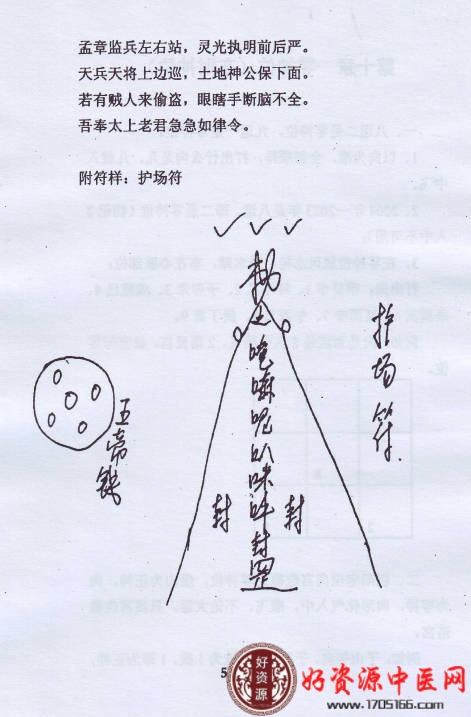 孟章监兵左右站，灵光执明前后严。
天兵天将上边巡，土地神公保下面。
若有贼人来偷盗，眼瞎手断脑不全。
吾奉太上老君急急如律令。
附符样：护场符
护场符
五帝钱
唵嘛呢叭咪吽封罡
封
封
5
好资源
好资源中医网
www.1705166.com